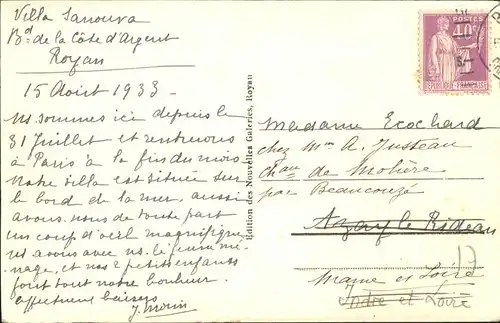 Villa Sanouva
Bd de la Côte d'Argent
Royan
15 Août 1933 -
Ns sommes ici depuis le
31 Juillet et rentrerons
à Paris à la fin du mois.
Notre villa est située sur
le bord de la mer, aussi
avons-nous de toute part
un coup d'œil magnifique
ns avons avec ns. le jeune mé-
nage, et nos 2 petits enfants
font tout notre bonheur.
affectueux baisers
J. Morin
Edition des Nouvelles Galeries, Royan
POSTES
40c
REPUBLIQUE FRANÇAISE
Madame Ecochard
chez Mme A. Justeau
Chau de Molière
par Beaucouzé
Azay le Rideau
Maine et Loire
Indre et Loire